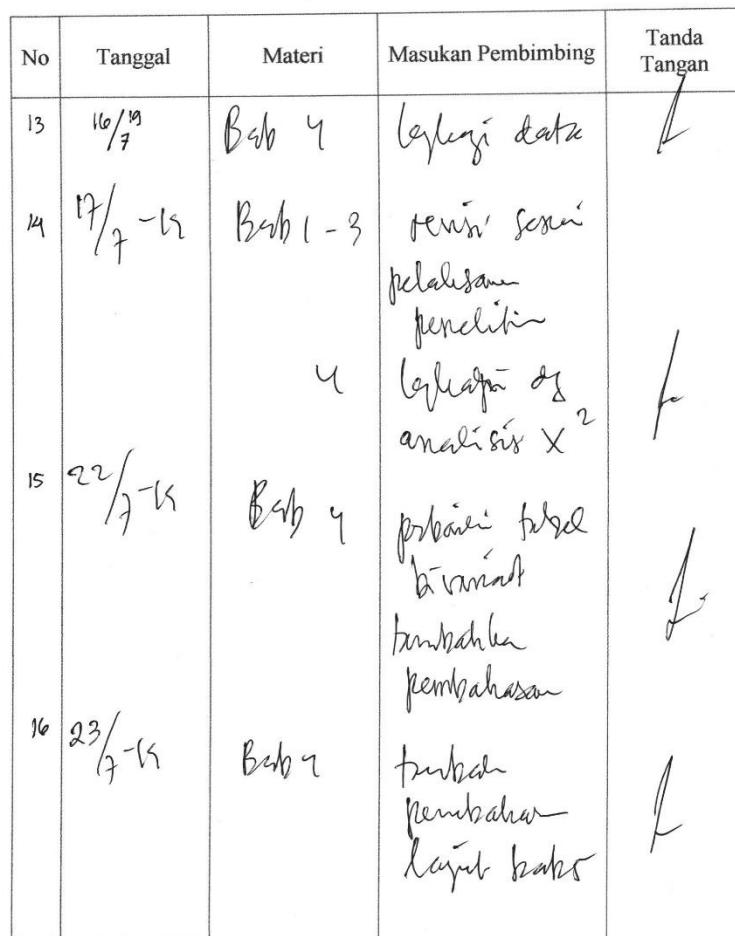 No Tanggal Materi Masukan Pembimbing Tanda Tangan
13 16/7 19 Bab 4 lengkapi data
14 17/7 -19 Bab 1 - 3 revisi sesuai
pelaksanaan
penelitian
4 lengkapi dg
analisis X²
15 22/7 -19 Bab 4 perbaiki tabel
bivariat
tambahkan
pembahasan
16 23/7 -19 Bab 4 tambah
pembahasan
lanjut bab 5